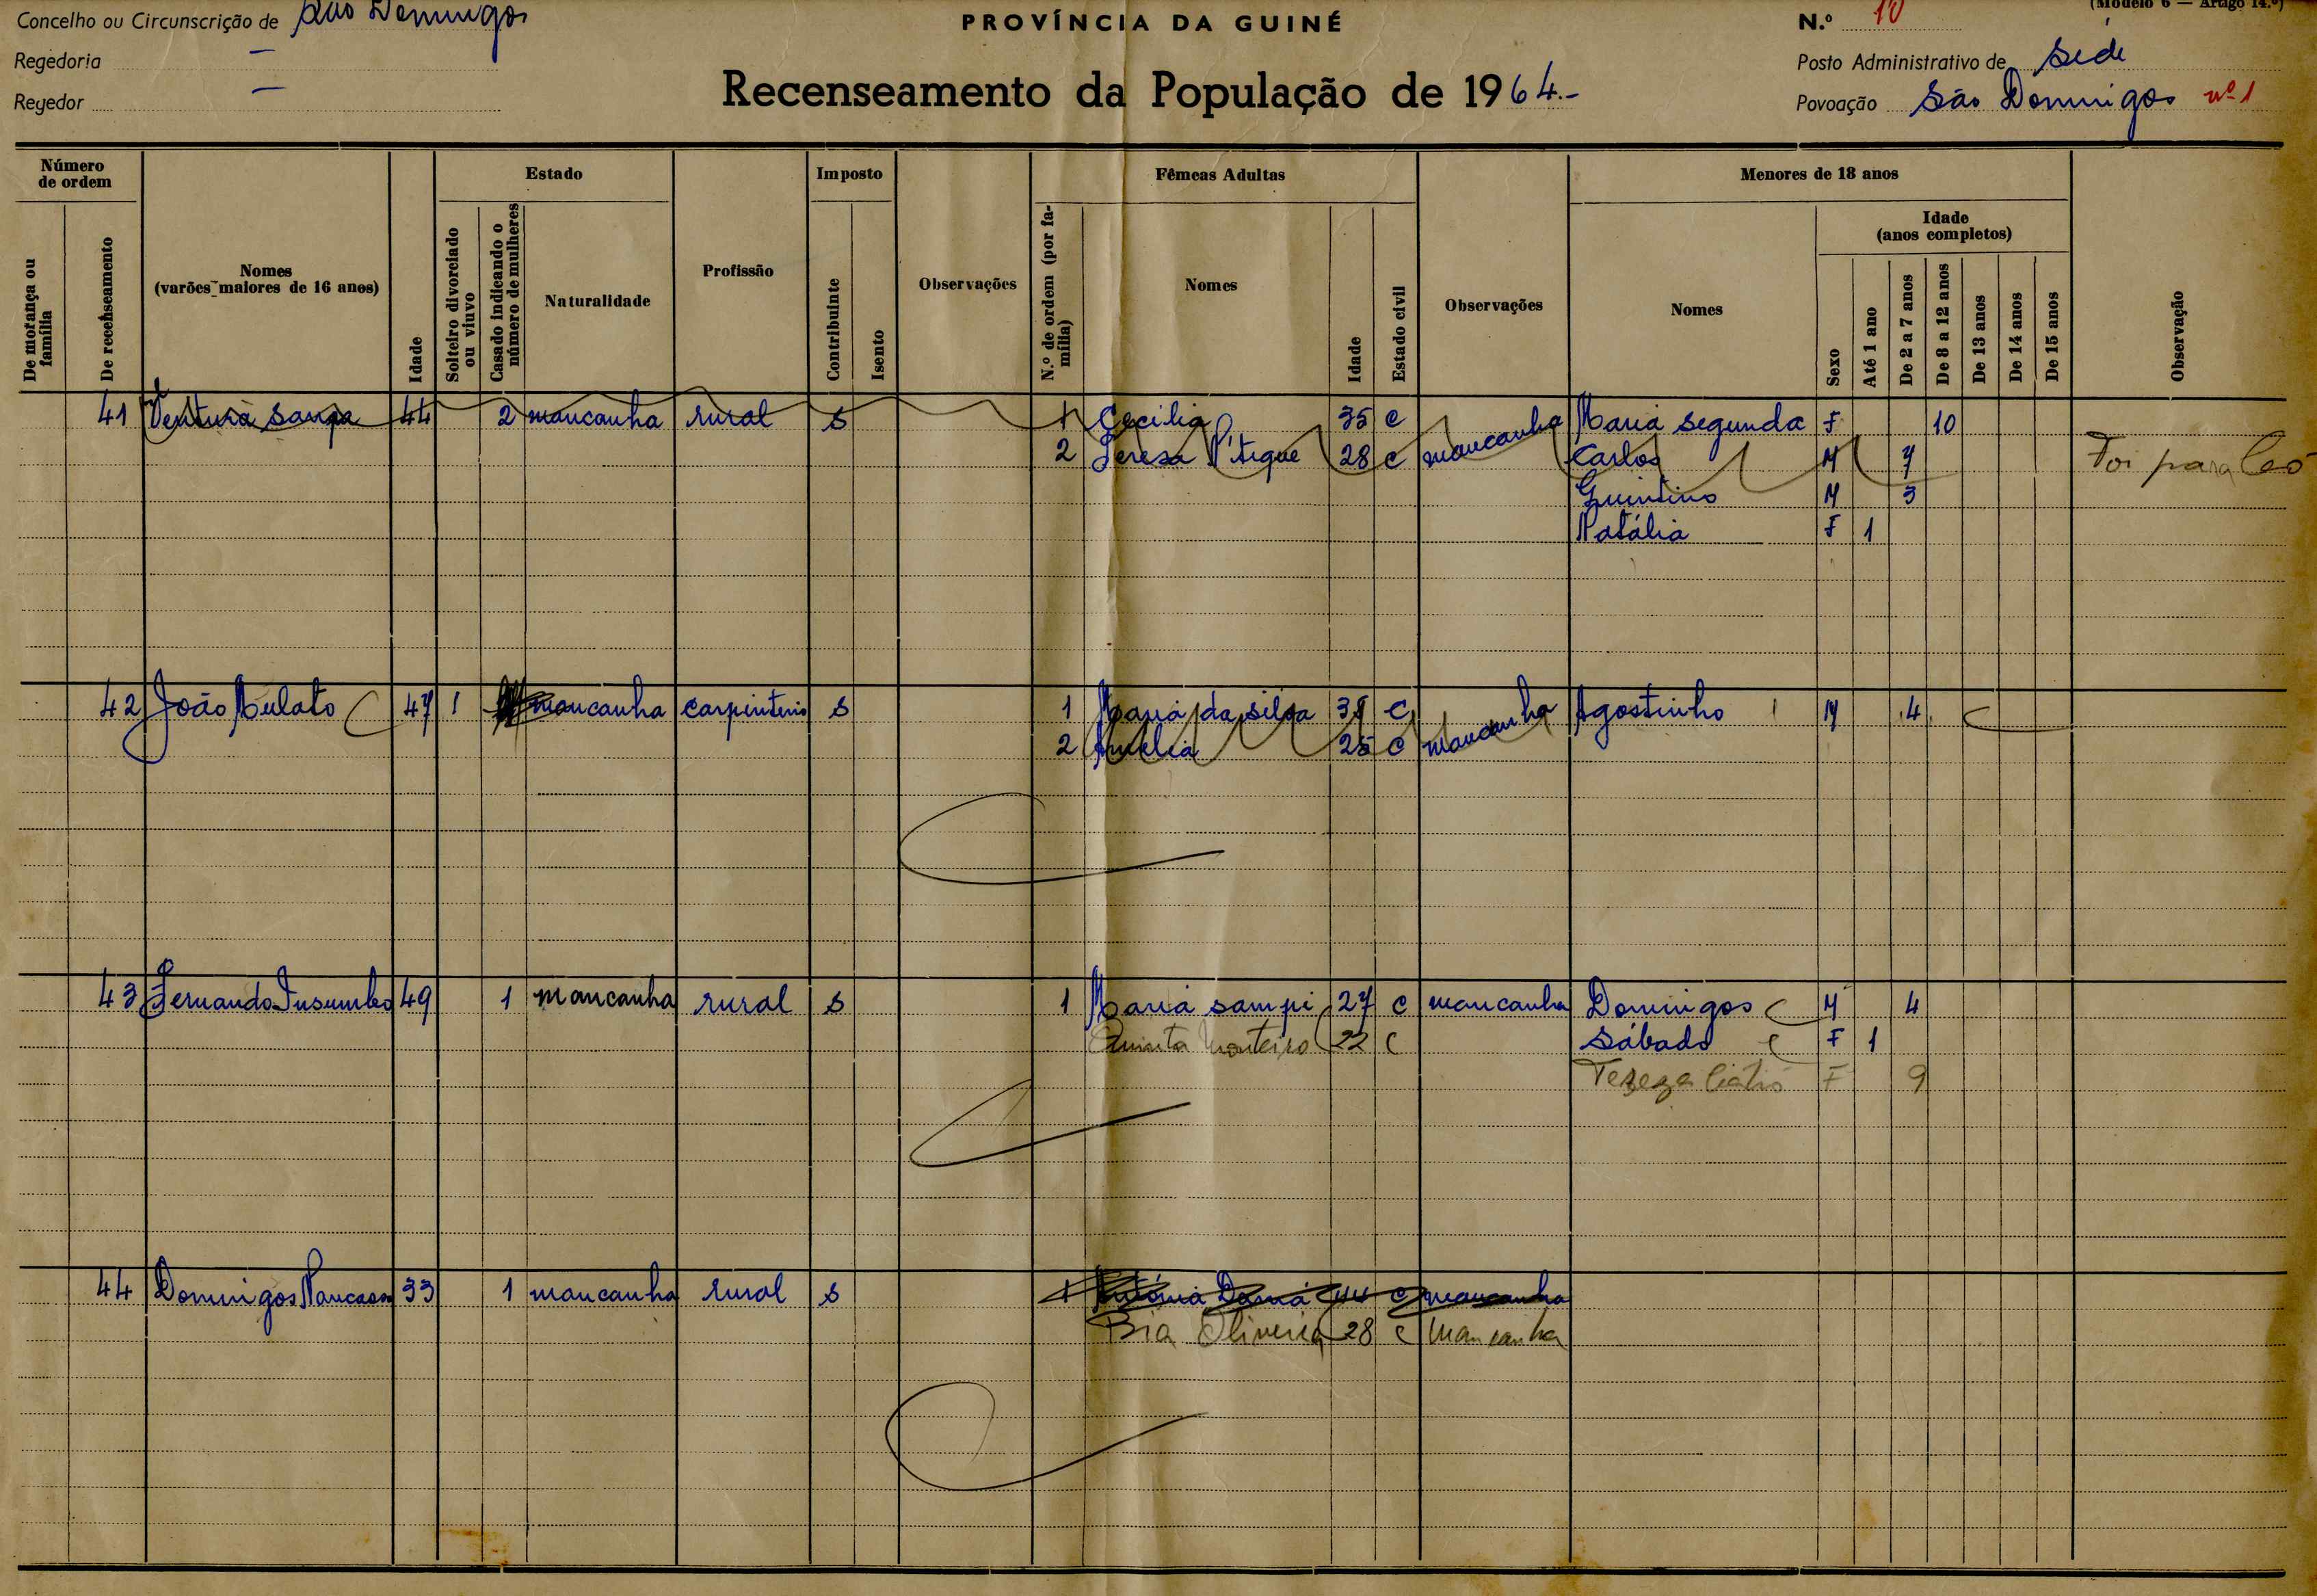 Concelho ou Circunscrição de São Domingos
PROVÍNCIA DA GUINÉ
N.º 10
(Modelo 6 — Artigo 14.º)
Regedoria —
Posto Administrativo de Sede
Regedor —
Recenseamento da População de 1964.-
Povoação São Domingos nº 1
Número de ordem
De morança ou família
De recenseamento
Nomes (varões maiores de 16 anos)
Idade
Estado
Solteiro divorciado ou viuvo
Casado indicando o número de mulheres
Naturalidade
Profissão
Imposto
Contribuinte
Isento
Observações
Fêmeas Adultas
N.º de ordem (por família)
Nomes
Idade
Estado civil
Observações
Menores de 18 anos
Nomes
Sexo
Idade (anos completos)
Até 1 ano
De 2 a 7 anos
De 8 a 12 anos
De 13 anos
De 14 anos
De 15 anos
Observação
41 Ventura Sampa 44 2 mancanha rural s 1 Cecilia 35 c Maria Segunda F 10
2 Teresa 28 c mancanha Carlos M 7 Foi para
Quintino M 3
Natália F 1
42 João Mulato 47 1 mancanha carpinteiro s 1 Maria da Silva c Agostinho M 4
2 Amélia 25 c mancanha
43 Fernando Insumbo 49 1 mancanha rural s 1 Maria Sampi 27 c mancanha Domingos M 4
Quinta Monteiro 22 c Sábado F 1
Tereza F 9
44 Domingos 33 1 mancanha rural s 1 Antónia 44 c mancanha
Bia Oliveira 28 c mancanha